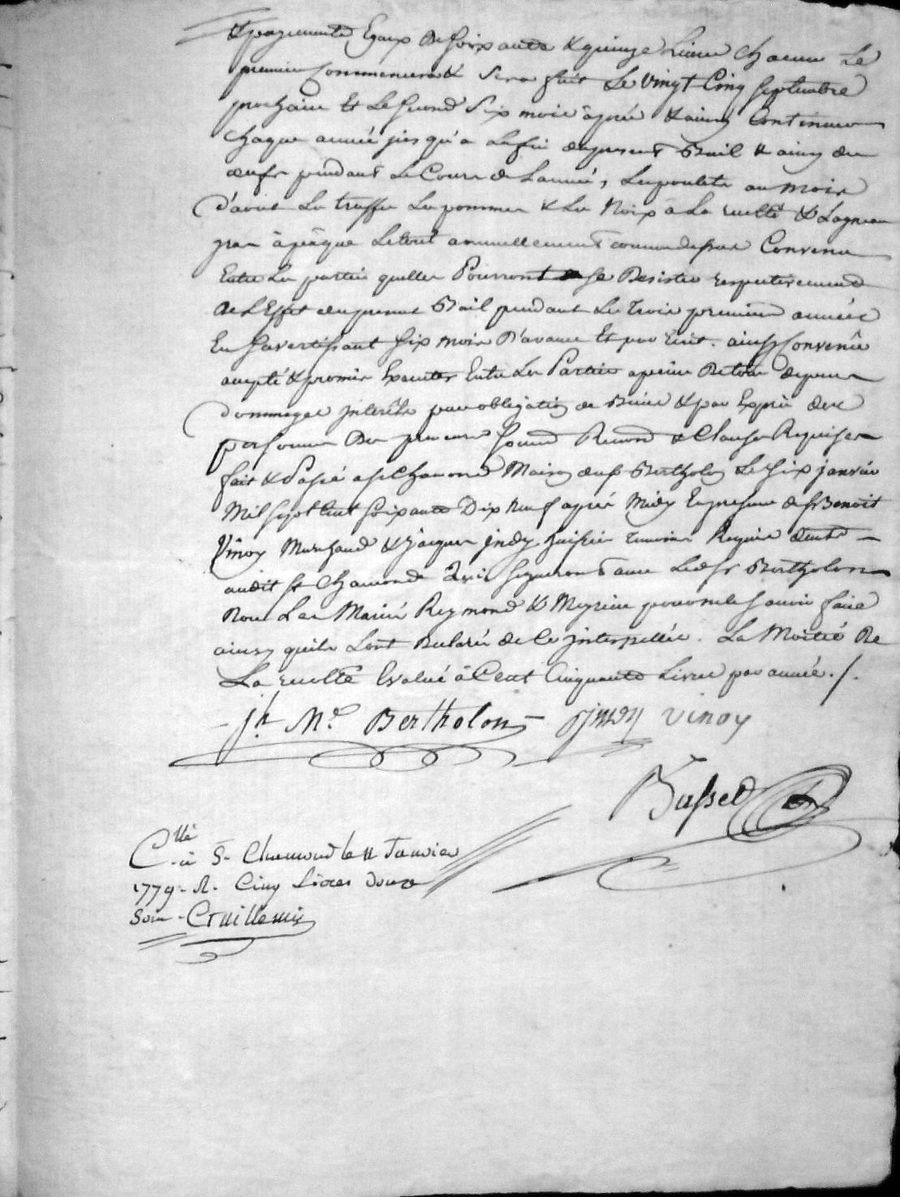 & payements Egaux de soixante & quinze Livres chacun Le
premier commencera & sera fait Le vingt cinq septembre
prochain Et Le second six mois après & ainsy continuer
chaque année jusqu'a La fin du present Bail & ainsy des
œufs pendant Le Cours de L'année, Les poulets au mois
d'aoust Les truffes Les pommes & Les Noix à La recolte & L'agneau
gras à pâque Le tout annuellement comme dessus Convenu
Entre Les parties qu'elles Pourront se Desister respectivement
de L'Effet du present Bail pendant Les trois premieres années
En s'avertissant six mois D'avance Et par Ecrit. ainsy Convenû
accepté & promis Executer Entre Les Parties a peine De tous depens
dommages interêts par obligation de Biens & par Exprès de
personnes Des preneurs soumis Renon & Clauses Requises
fait & Passé a St Chamond Maison dud sr Bertholon Le six janvier
Mil sept Cent soixante Dix Neuf après Midy En presence de sr Benoit
Vinoy Marchand & jacques jndy huissier temoins Requis demt
audit St Chamond qui signeront avec Led sr Bertholon
Non Les Mariés Reymond & Meyrieu pour ne le savoir faire
ainsy qu'ils L'ont Declaré de Ce interpellés. La Moitié De
La recolte Evalué à Cent Cinquante Livres par année./.
jh. Md. Bertholon jndy vinoy
Busset
Cllé à St Chamond le 11 Janvier
1779 - R. Cinq Livres douze
Sous - Cruillemin